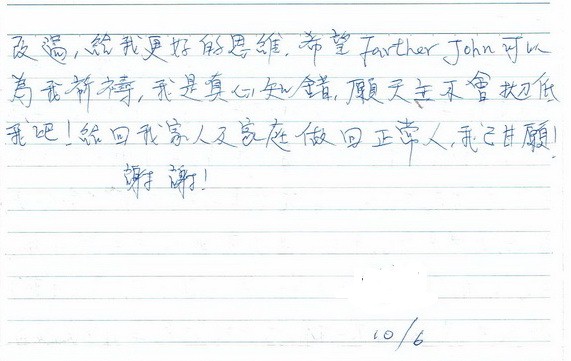 改過，給我更好的思維。希望Farther John可以
為我祈禱，我是真心知錯，願天主不會拋低
我吧！給回我家人及家庭做回正常人，我已甘願！
謝謝！
10/6